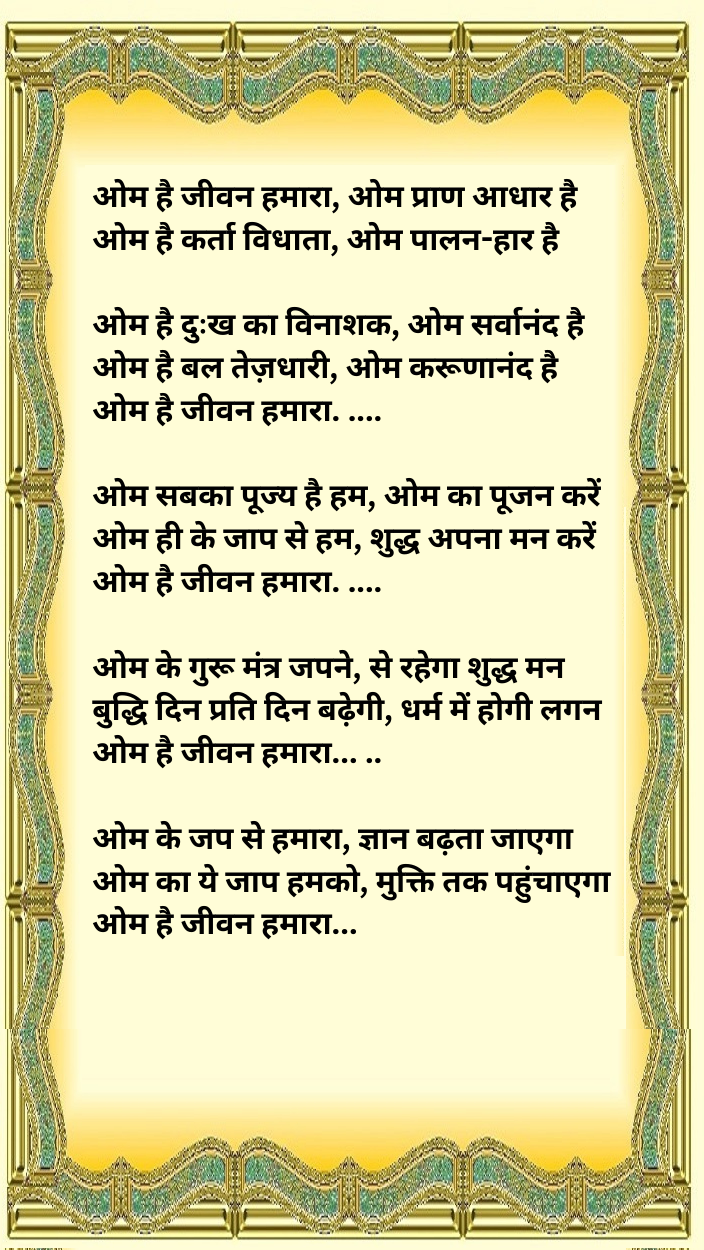 ओम है जीवन हमारा, ओम प्राण आधार है
ओम है कर्ता विधाता, ओम पालन-हार है
ओम है दुःख का विनाशक, ओम सर्वानंद है
ओम है बल तेज़धारी, ओम करूणानंद है
ओम है जीवन हमारा. ....
ओम सबका पूज्य है हम, ओम का पूजन करें
ओम ही के जाप से हम, शुद्ध अपना मन करें
ओम है जीवन हमारा. ....
ओम के गुरू मंत्र जपने, से रहेगा शुद्ध मन
बुद्धि दिन प्रति दिन बढ़ेगी, धर्म में होगी लगन
ओम है जीवन हमारा... ..
ओम के जप से हमारा, ज्ञान बढ़ता जाएगा
ओम का ये जाप हमको, मुक्ति तक पहुंचाएगा
ओम है जीवन हमारा...